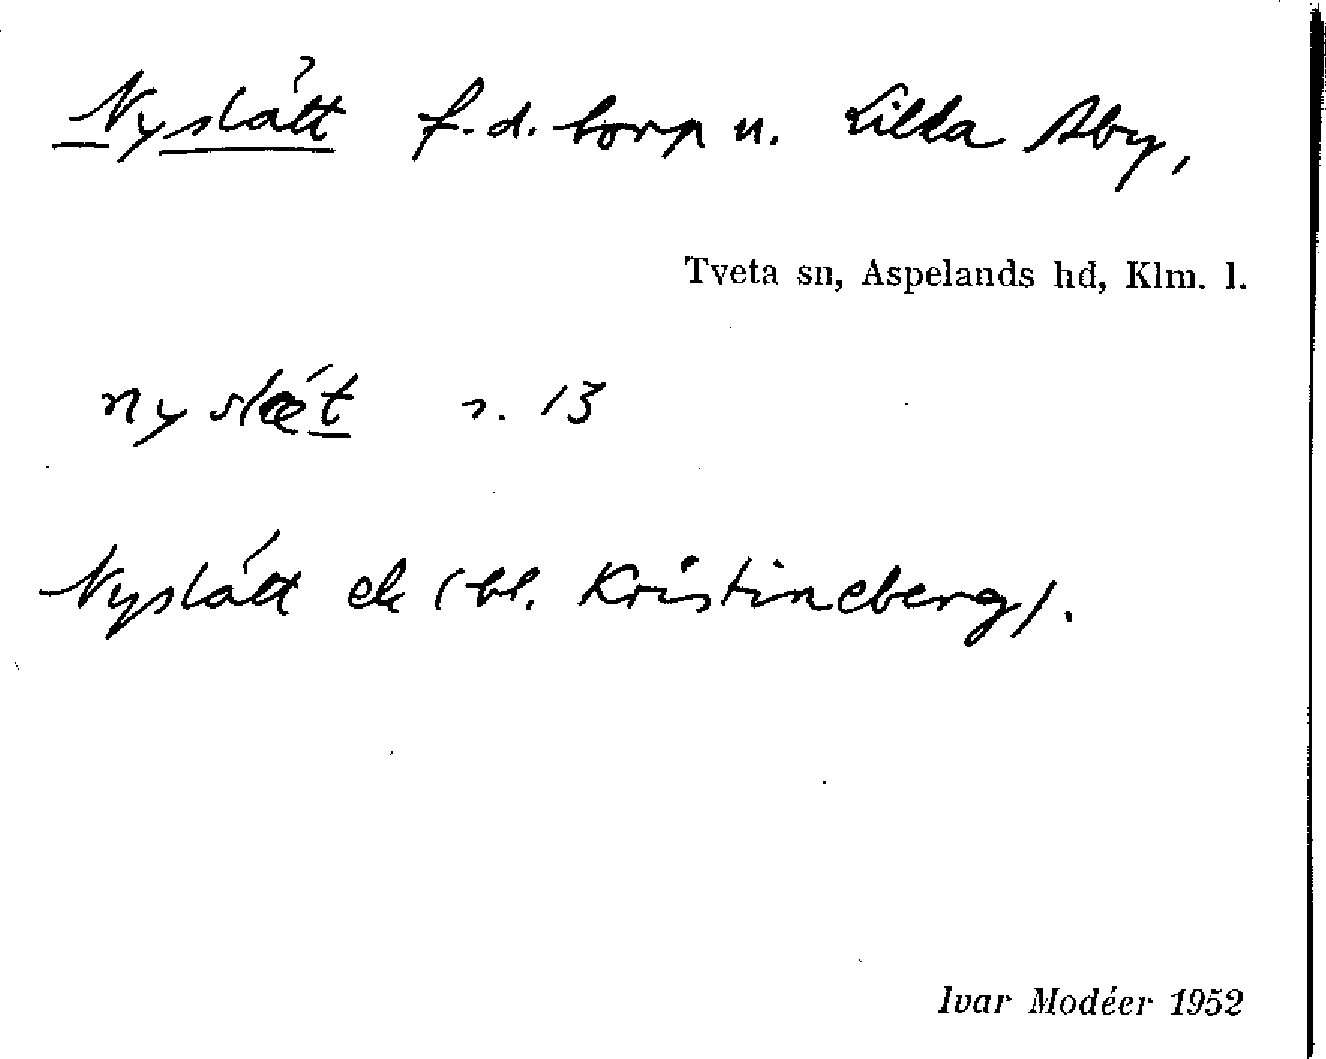 Nyslått f.d. torp u. Lilla Åby,
Tveta sn, Aspelands hd, Klm. l.
s. 13
Nyslátt ek (bl. Kristineberg).
Ivar Modéer 1952